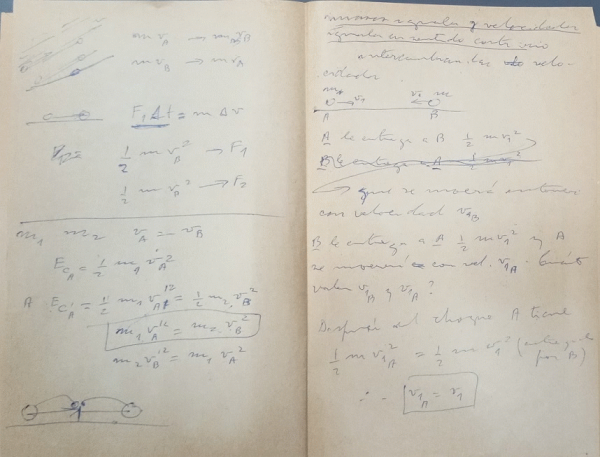 m v_A →
m v_B → m v_A
F_1 Δt = m Δv
1/2 m v_B^2 → F_1
1/2 m v_B^2 → F_2
m_1 m_2 v_A = - v_B
E_{C_A} = 1/2 m_1 v_A^2
A E_{C'_A} = 1/2 m_1 v_A'^2 = 1/2 m_2 v_B^2
m_1 v_A'^2 = m_2 v_B^2
m_2 v_B'^2 = m_1 v_A^2
masas iguales y velocidades
iguales en sentido contrario
intercambian las velo-
cidades
A B
A le entrega a B 1/2 m v_1^2
B le entrega a A 1/2 m v_1^2
que se moverá entonces
con velocidad v_{1B}
B le entrega a A 1/2 m v_1^2 y A
se moverá con vel. v_{1A}. Cuánto
valen v_{1B} y v_{1A}?
Después del choque A tiene
1/2 m v_{1A}^2 = 1/2 m v_1^2 (entregada
por B)
∴ v_{1A} = v_1